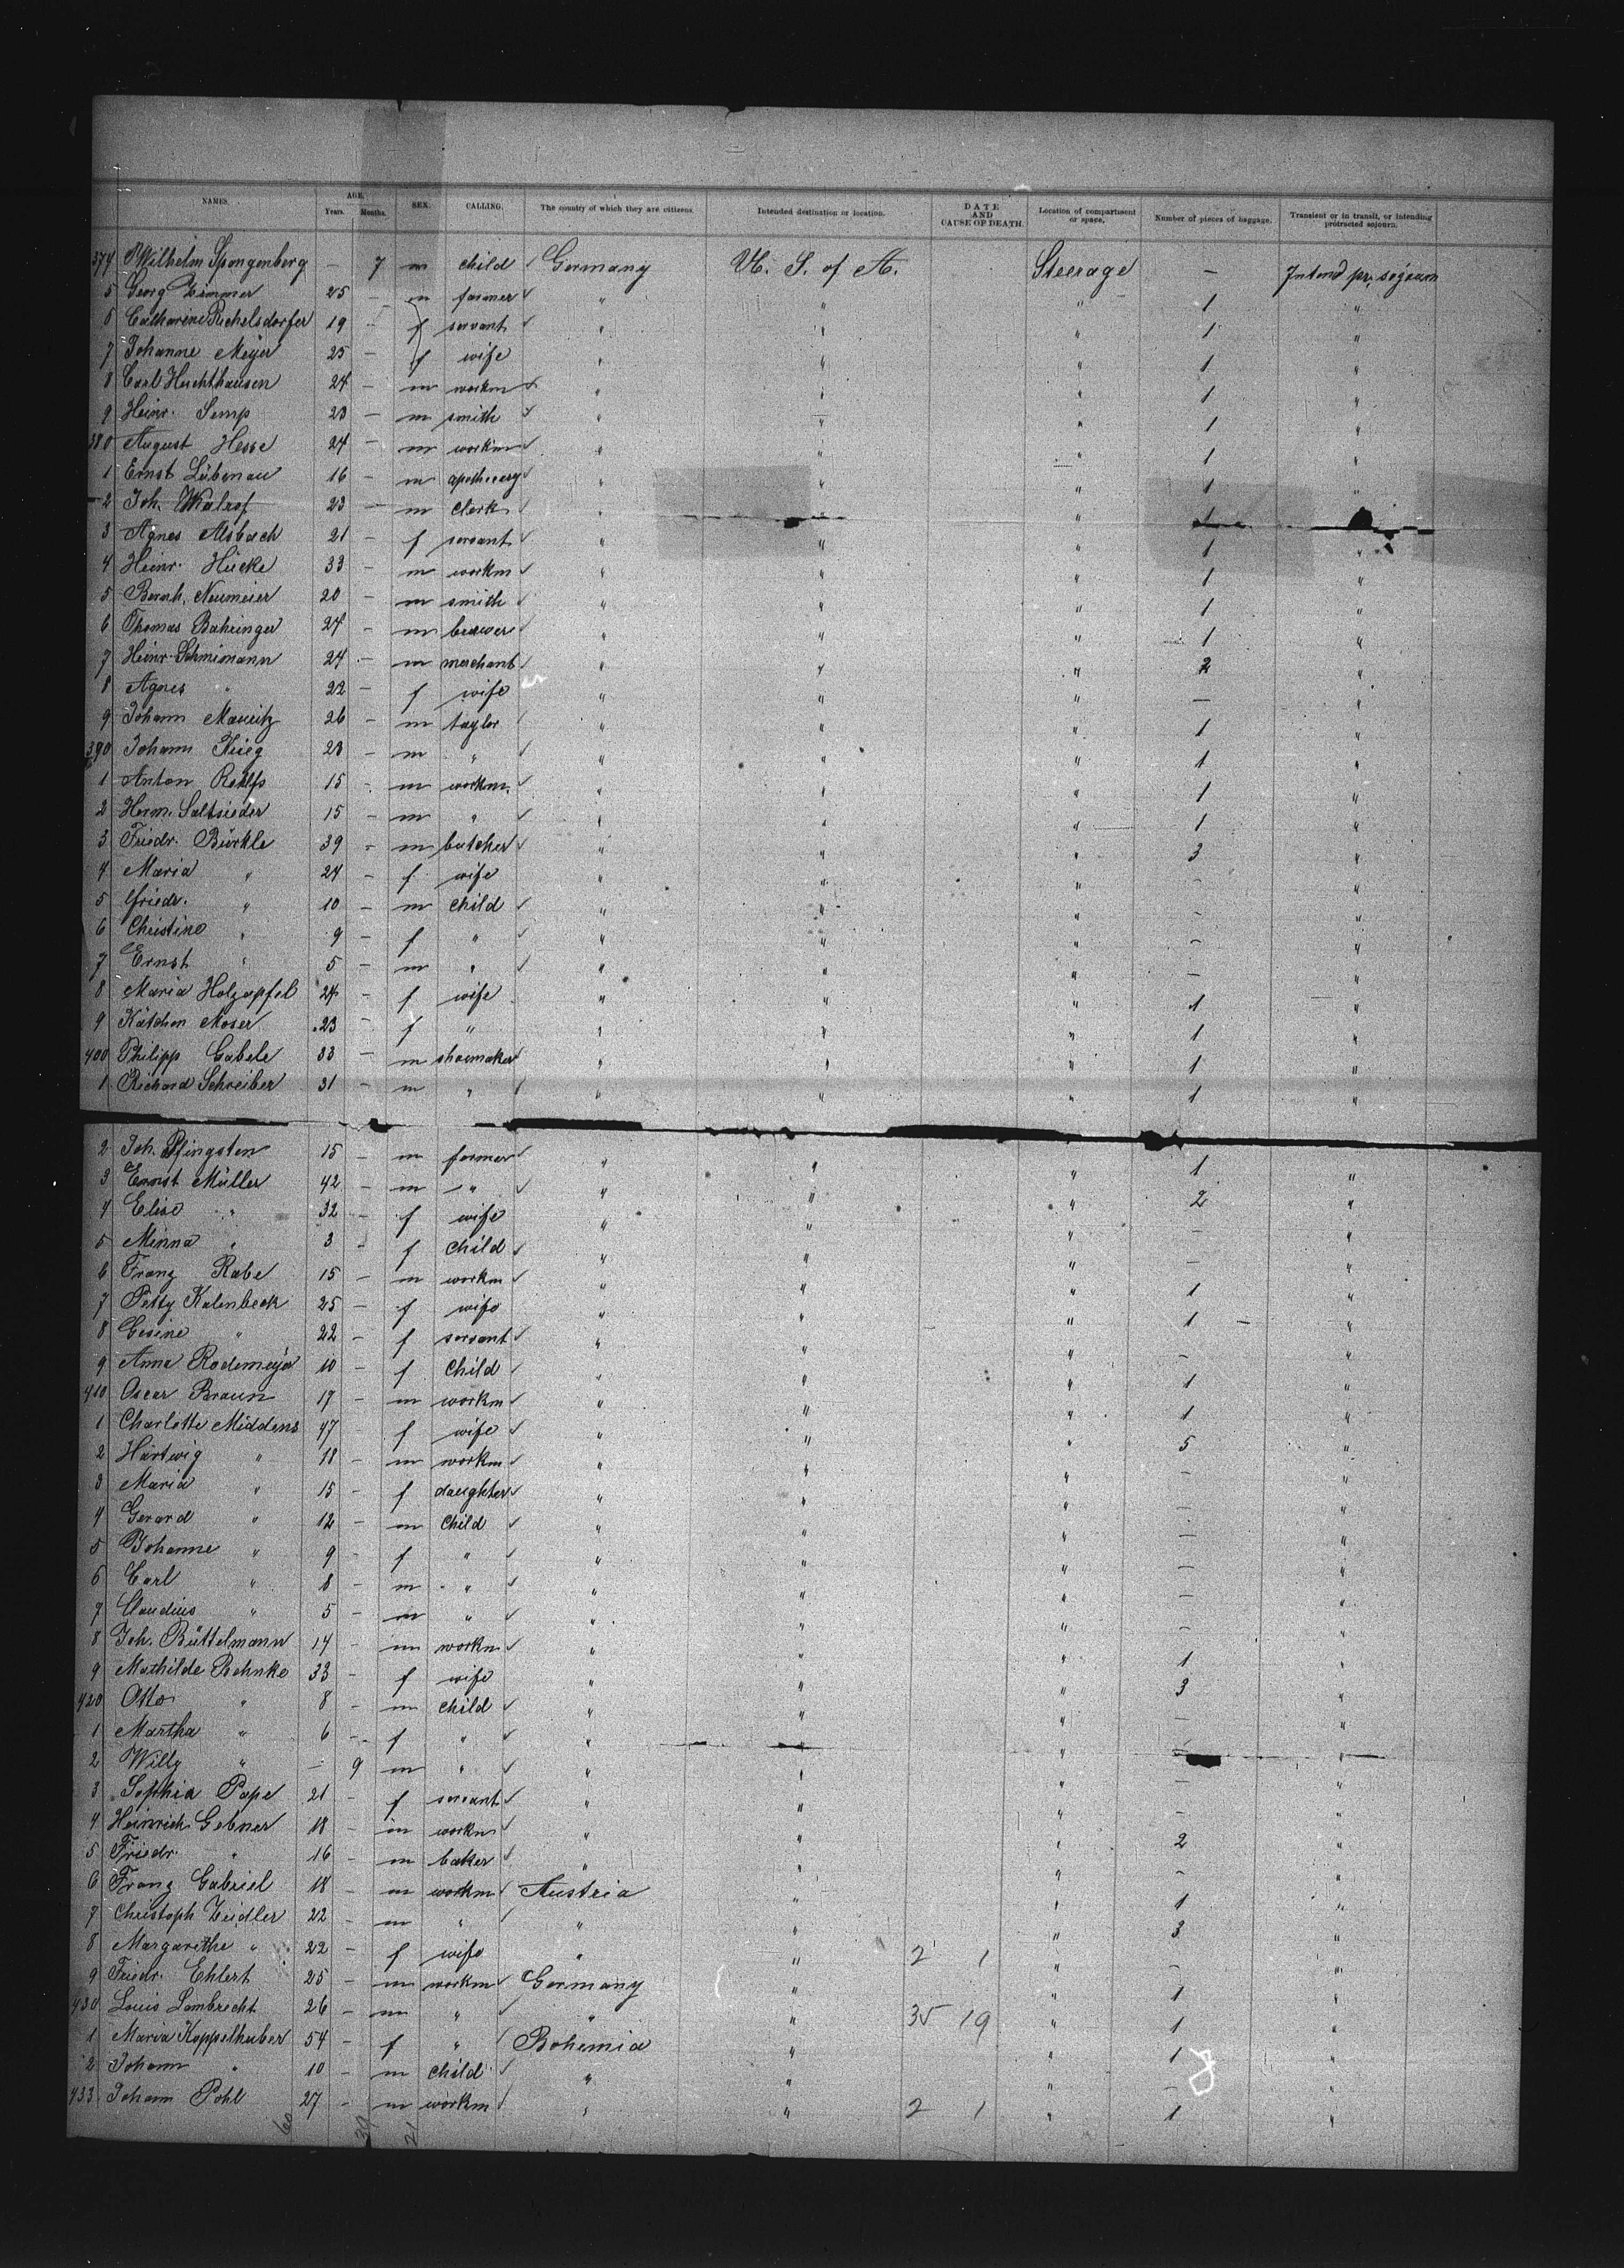 NAMES. AGE. Years. Months. SEX. CALLING. The country of which they are citizens. Intended destination or location. DATE AND CAUSE OF DEATH. Location of compartment or space. Number of pieces of baggage. Transient or in transit, or intending protracted sojourn.
374 Wilhelm Spangenberg — 7 m child Germany U. S. of A. Steerage — Intend pr. sojourn
5 Georg Zimmer 25 — m farmer " " " 1 "
6 Catharine Richelsdorfer 19 — f servant " " " 1 "
7 Johanne Meyer 25 — f wife " " " 1 "
8 Carl Huchthausen 24 — m workm " " " 1 "
9 Heinr. Semp 23 — m smith " " " 1 "
380 August Hesse 24 — m workm " " " 1 "
1 Ernst Lübenau 16 — m apothecary " " " 1 "
2 Joh. Walraf 23 — m clerk " " " 1
3 Agnes Alsbach 21 — f servant " " " 1 "
4 Heinr. Hücke 33 — m workm " " " 1 "
5 Bernh. Neumeier 20 — m smith " " " 1 "
6 Thomas Bahringer 24 — m brewer " " " 1 "
7 Heinr. Schmimann 24 — m merchant " " " 2 "
8 Agnes " 22 — f wife " " " — "
9 Johann Mauritz 26 — m taylor " " " 1 "
390 Johann Krieg 23 — m " " " " 1 "
1 Anton Rohlfs 15 — m workm. " " " 1 "
2 Herm. Saltsieder 15 — m " " " " 1 "
3 Friedr. Bürkle 39 — m butcher " " " 3 "
4 Maria " 24 — f wife " " " — "
5 Friedr. " 10 — m child " " " — "
6 Christine " 9 — f " " " " — "
7 Ernst " 5 — m " " " " — "
8 Maria Holzapfel 24 — f wife " " " 1 "
9 Kätchen Moser 23 — f " " " " 1 "
400 Philipp Gabele 33 — m shoemaker " " " 1 "
1 Richard Schreiber 31 — m " " " " 1 "
2 Joh. Pfingsten 15 — m farmer " " " 1 "
3 Ernst Müller 42 — m " " " " 2 "
4 Elise " 32 — f wife " " " — "
5 Minna " 3 — f child " " " — "
6 Franz Rabe 15 — m workm " " " 1 "
7 Petty Kalenbeck 25 — f wife " " " 1 "
8 Gesine " 22 — f servant " " " — "
9 Anna Rodemeyer 10 — f child " " " 1 "
410 Oscar Braun 17 — m workm " " " 1 "
1 Charlotte Middens 47 f wife " " " 5 "
2 Hartwig " 18 — m workm " " " — "
3 Maria " 15 — f daughter " " " — "
4 Gerard " 12 — m child " " " — "
5 Johanne " 9 — f " " " " — "
6 Carl " 8 — m " " " " — "
7 Claudius " 5 — m " " " " — "
8 Joh. Büttelmann 14 — m workm " " " 1 "
9 Mathilde Behnke 33 — f wife " " " 3 "
420 Otto " 8 — m child " " " — "
1 Martha " 6 — f " " " " — "
2 Willy " — 9 m " " " " — "
3 Sophia Pape 21 — f servant " " " — "
4 Heinrich Gebner 18 — m workm " " " 2 "
5 Friedr. " 16 — m baker " " " — "
6 Franz Gabriel 18 — m workm Austria " " 1 "
7 Christoph Zeidler 22 — m " " " " 3 "
8 Margarethe " 22 — f wife " " 2 1 " — "
9 Friedr. Ehlert 25 — m workm Germany " " 1 "
430 Louis Lambrecht 26 — m " " " 35 19 " 1 "
1 Maria Koppelhuber 54 — f " Bohemia " " 1 "
2 Johann " 10 — m child " " " — "
433 Johann Pohl 27 — m workm " " 2 1 " 1 "
8
60 39 21